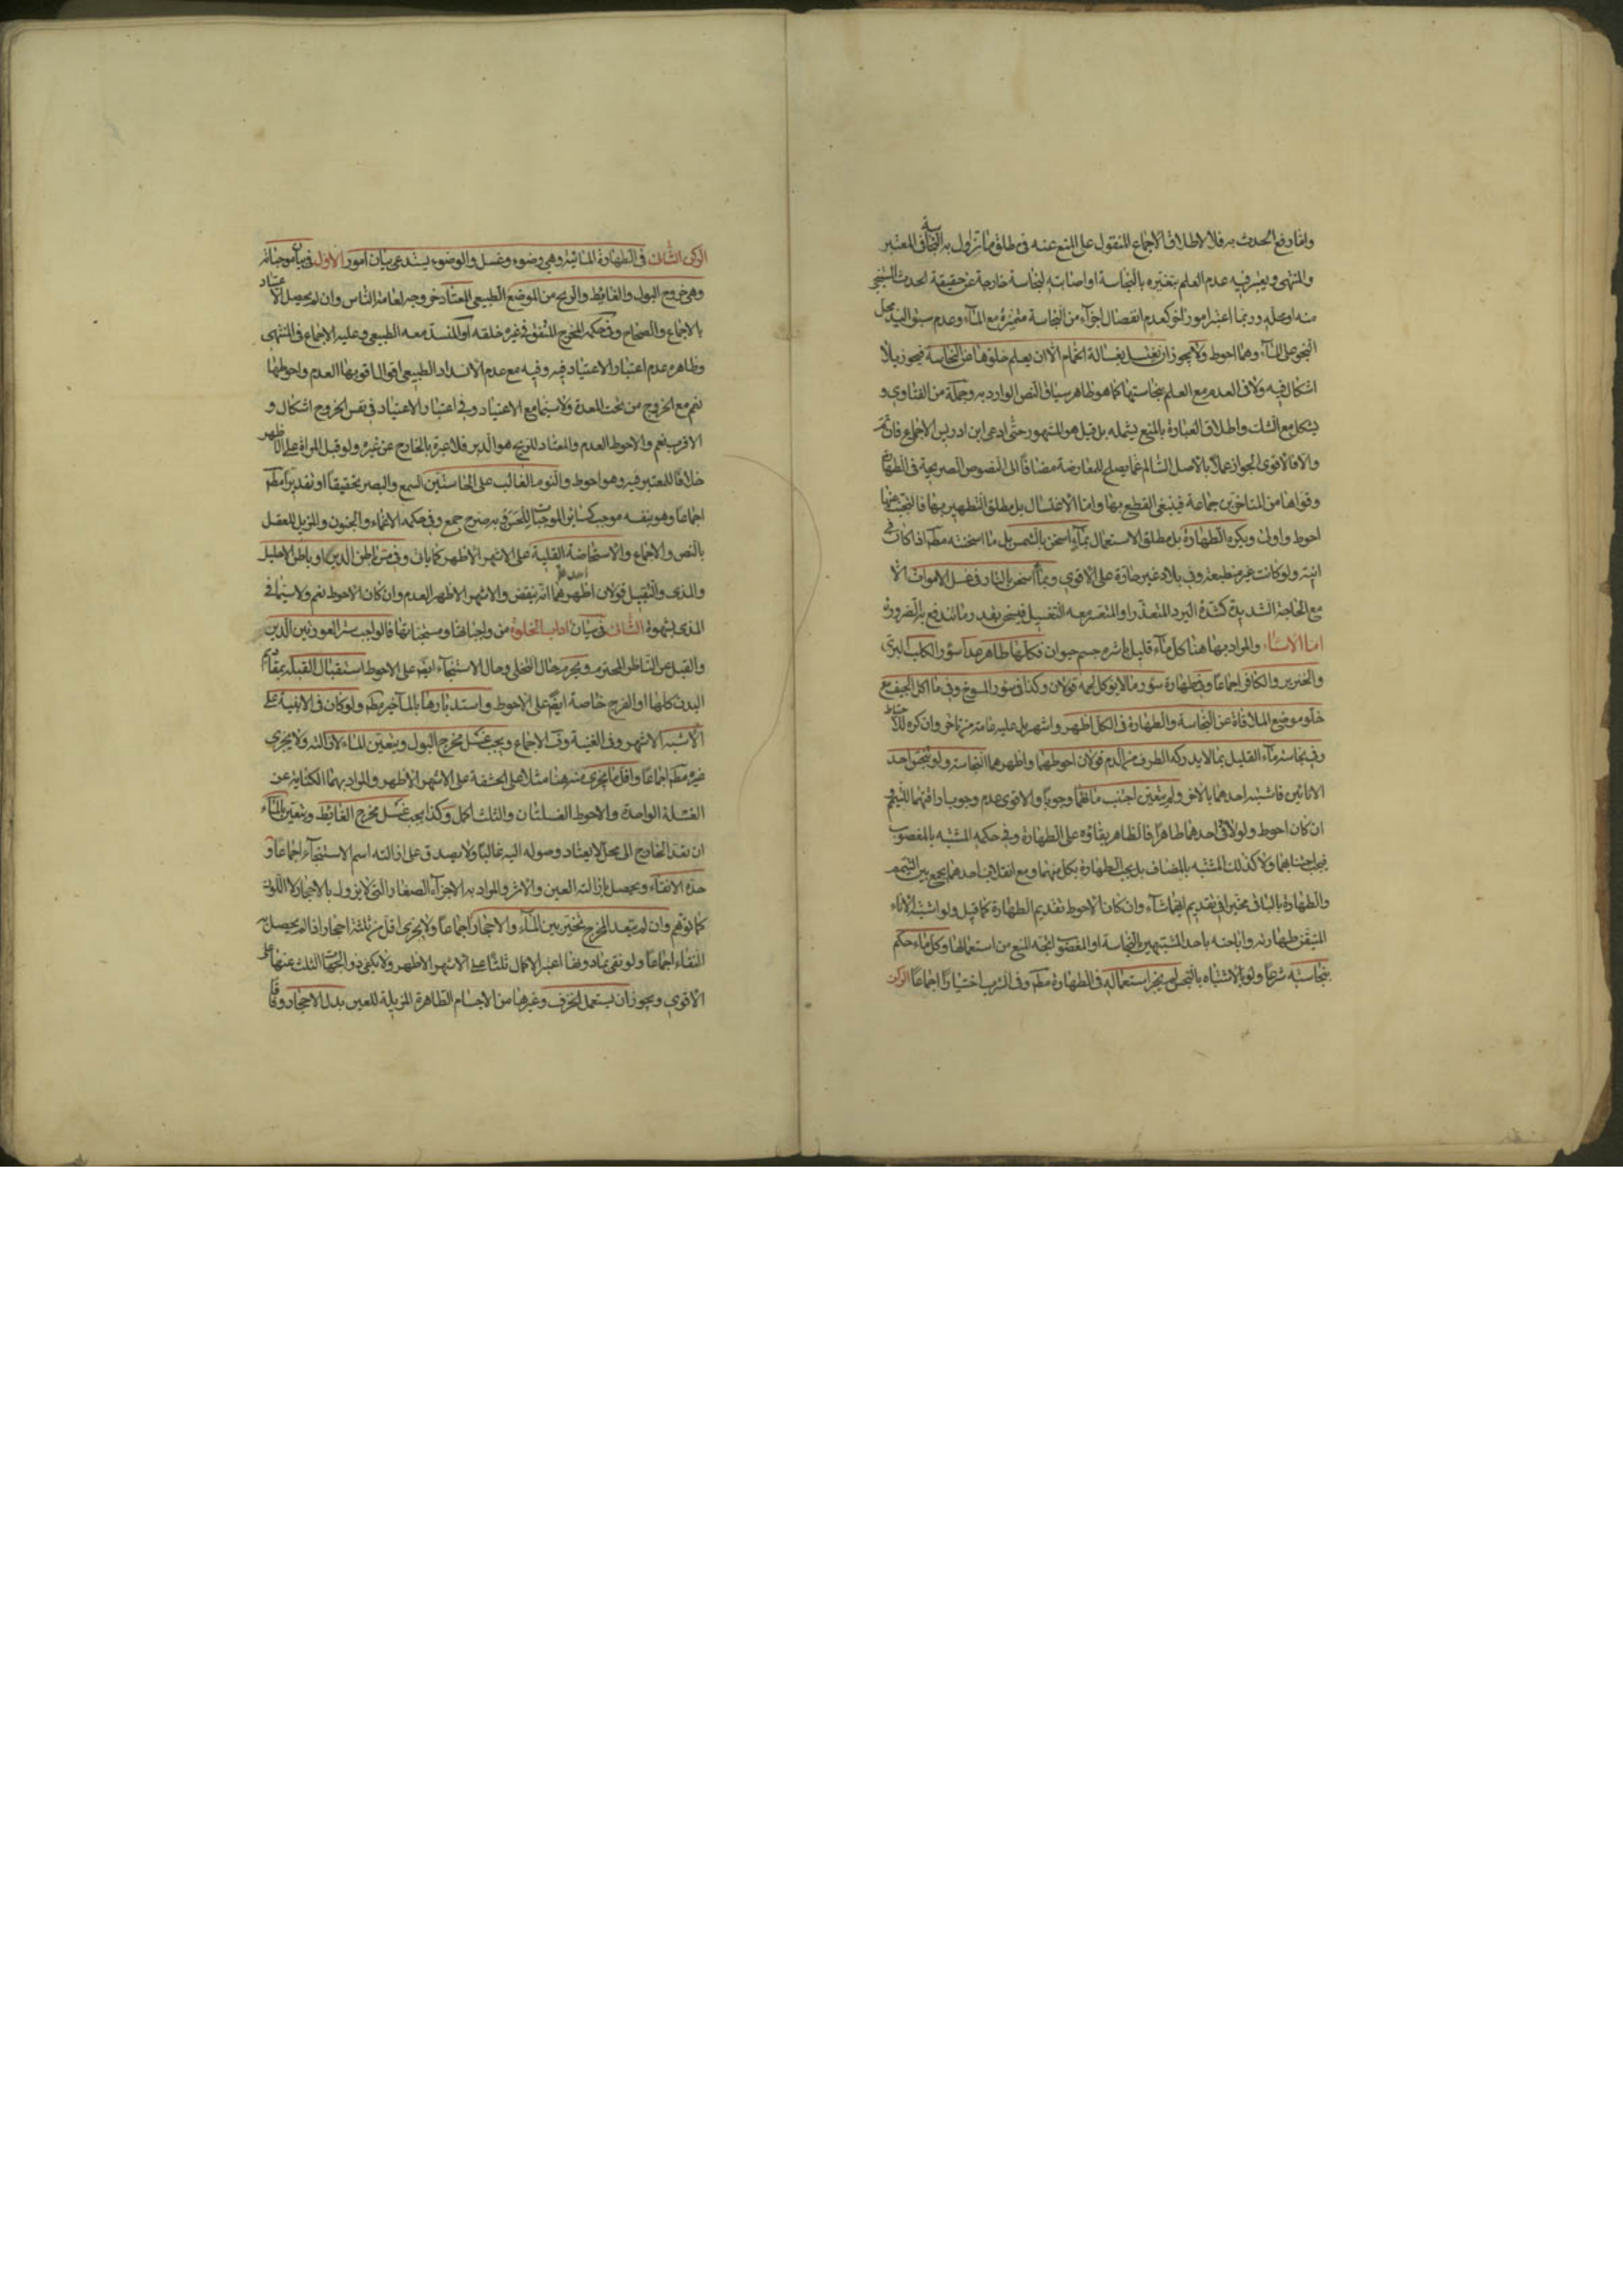 واما رفع الحدث به فلا لاطلاق الاجماع المنقول على المنع عنه في مطلق ما تزول به النجاسة في المعتبر
والمنتهى ويعتبر فيه عدم العلم بتغيره بالنجاسة او اصابته لنجاسة خارجة عن حقيقة الحدث المستنجى
منه او محله وربما اعتبر امور اخر كعدم انفصال اجزاء من النجاسة متميزة مع الماء وعدم سبق اليد محل
النجو على الماء وهما احوط ولا يجوز ان يغتسل بغسالة الحمام الا ان يعلم خلوها من النجاسة فيجوز بلا
اشكال فيه ولا في العدم مع العلم بنجاستها كما هو ظاهر سياق النص الوارد به وجملة من الفتاوي و
يشكل مع الشك واطلاق العبارة بالمنع يشمله بل قيل هو المشهور حتى ادعى ابن ادريس الاجماع فان تم
والا فالاقوى الجواز عملا بالاصل السالم عما يصلح للمعارضة مضافا الى النصوص الصريحة في الطهارة
وقواها من المتاخرين جماعة فينبغي القطع بها واما الاغتسال بل مطلق التطهير بها فالتجنب عنها
احوط واولى ويكره الطهارة بل مطلق الاستعمال بماء اسخن بالشمس بل ما اسخنته مطلقا اذا كان في
انية ولو كانت غير منطبعة وفي بلاد غير حارة على الاقوى وبماء اسخن بالنار في غسل الاموات الا
مع الحاجة الشديدة كشدة البرد المتعذر او المتعسر معه التغسيل فيسخن بقدر ما تندفع به الضرورة
اما الاسآر والمراد بها هنا كل ماء قليل باشره جسم حيوان فكلها طاهر عدا سؤر الكلب البري
والخنزير والكافر اجماعا وفي طهارة سؤر ما لا يوكل لحمه قولان وكذا في سؤر المسوخ وفي ما اكل الجيف مع
خلو موضع الملاقاة عن النجاسة والطهارة في الكل اظهر واشهر بل عليه عامة من تاخر وان كره للاحتياط
وفي نجاسة ماء القليل بما لا يدركه الطرف من الدم قولان احوطهما واظهرهما النجاسة ولو نجس احد
الانائين فاشتبه احدهما بالاخر ولم يتعين اجتنب ماؤهما وجوبا والاقوى عدم وجوب اراقتهما للتيمم
ان كان احوط ولو لاقى احدهما طاهرا فالظاهر بقاؤه على الطهارة وفي حكمه المشتبه بالمغصوب
فيجب اجتنابهما ولا كذلك المشتبه بالمضاف بل يجب الطهارة بكل منهما ومع انقلاب احدهما يجمع بين التيمم
والطهارة بالباقي مخيرا في تقديم ايهما شاء وان كان الاحوط تقديم الطهارة كما قيل ولو اشتبه الاناء
المتيقن طهارته واباحته باحد المشتبهين بالنجاسة او المغصوب اتجه المنع من استعمالها وكل ماء حكم
بنجاسته شرعا ولو بالاشتباه بالنجس لم يجز استعماله في الطهارة مطلقا وفي الشرب اختيارا اجماعا الركن
الركن الثاني في الطهارة المائية وهي وضوء وغسل والوضوء يستدعي بيان امور الاول في بيان موجباته
وهي خروج البول والغايط والريح من الموضع الطبيعي المعتاد خروجه لعامة الناس وان لم يحصل الاعتياد
بالاجماع والصحاح وفي حكمه المخرج المتفق في غيره خلقه او المنسد معه الطبيعي وعليه الاجماع في المنتهى
وظاهره عدم اعتبار الاعتياد فيه وفيه مع عدم الانسداد الطبيعي اقوال اقويها العدم واحوطها
نعم مع الخروج من تحت المعدة ولا سيما مع الاعتياد وفي اعتبار الاعتياد في نفس الخروج اشكال و
الاقرب نعم والاحوط العدم والمعتاد للريح هو الدبر فلا عبرة بالخارج عن غيره ولو قبل المراة على الاظهر
خلافا للمعتبر فيه وهو احوط والنوم الغالب على الحاستين السمع والبصر تحقيقا او تقديرا مطلقا
اجماعا وهو بنفسه موجب كسائر الموجبات للتصريح به صرح جمع وفي حكمه الاغماء والجنون والمزيل للعقل
بالنص والاجماع والاستحاضة القليلة على الاشهر الاظهر كما ياتي وفي مس باطن الدبر او باطن الاحليل
والمذي والتقبيل قولان اظهرهما انه لا ينقض والاشهر الاظهر العدم وان كان الاحوط نعم ولا سيما في
المذي بشهوة الثاني في بيان اداب الخلوة من واجباتها ومستحباتها فالواجب ستر العورتين الدبر
والقبل عن الناظر المحترم ويحرم حال التخلي وحال الاستنجاء ايضا على الاحوط استقبال القبلة بمقاديم
البدن كلها او الفرج خاصة ايضا على الاحوط واستدبارها بالمآخير مطلقا ولو كان في الابنية على
الاشبه الاشهر وفي الغنية وف الاجماع ويجب غسل مخرج البول ويتعين الماء لازالته ولا يجزي
غيره مطلقا اجماعا واقل ما يجزي منه هنا مثلا ما على الحشفة على الاشهر الاظهر والمراد بهما الكناية عن
الغسلة الواحدة والاحوط الغسلتان والثلث اكمل وكذا يجب غسل مخرج الغايط ويتعين بالماء
ان تعد الخارج الى محل لا يعتاد وصوله اليه غالبا ولا يصدق على ازالته اسم الاستنجاء اجماعا و
حده الانقاء ويحصل بازالة العين والاثر والمراد به الاجزاء الصغار التي لا يزول بالاحجار لا اللون
كما توهم وان لم يتعد المخرج تخير بين الماء والاحجار اجماعا ولا يجزي اقل من ثلثة احجار اذا لم يحصل به
النقاء اجماعا ولو نقى بما دونها اعتبر الاكمال ثلثا على الاشهر الاظهر ولا يكفي ذو الجهات الثلث عنها على
الاقوى ويجوز ان يستعمل الخزف وغيرها من الاجسام الطاهرة المزيلة للعين بدل الاحجار وفاقا